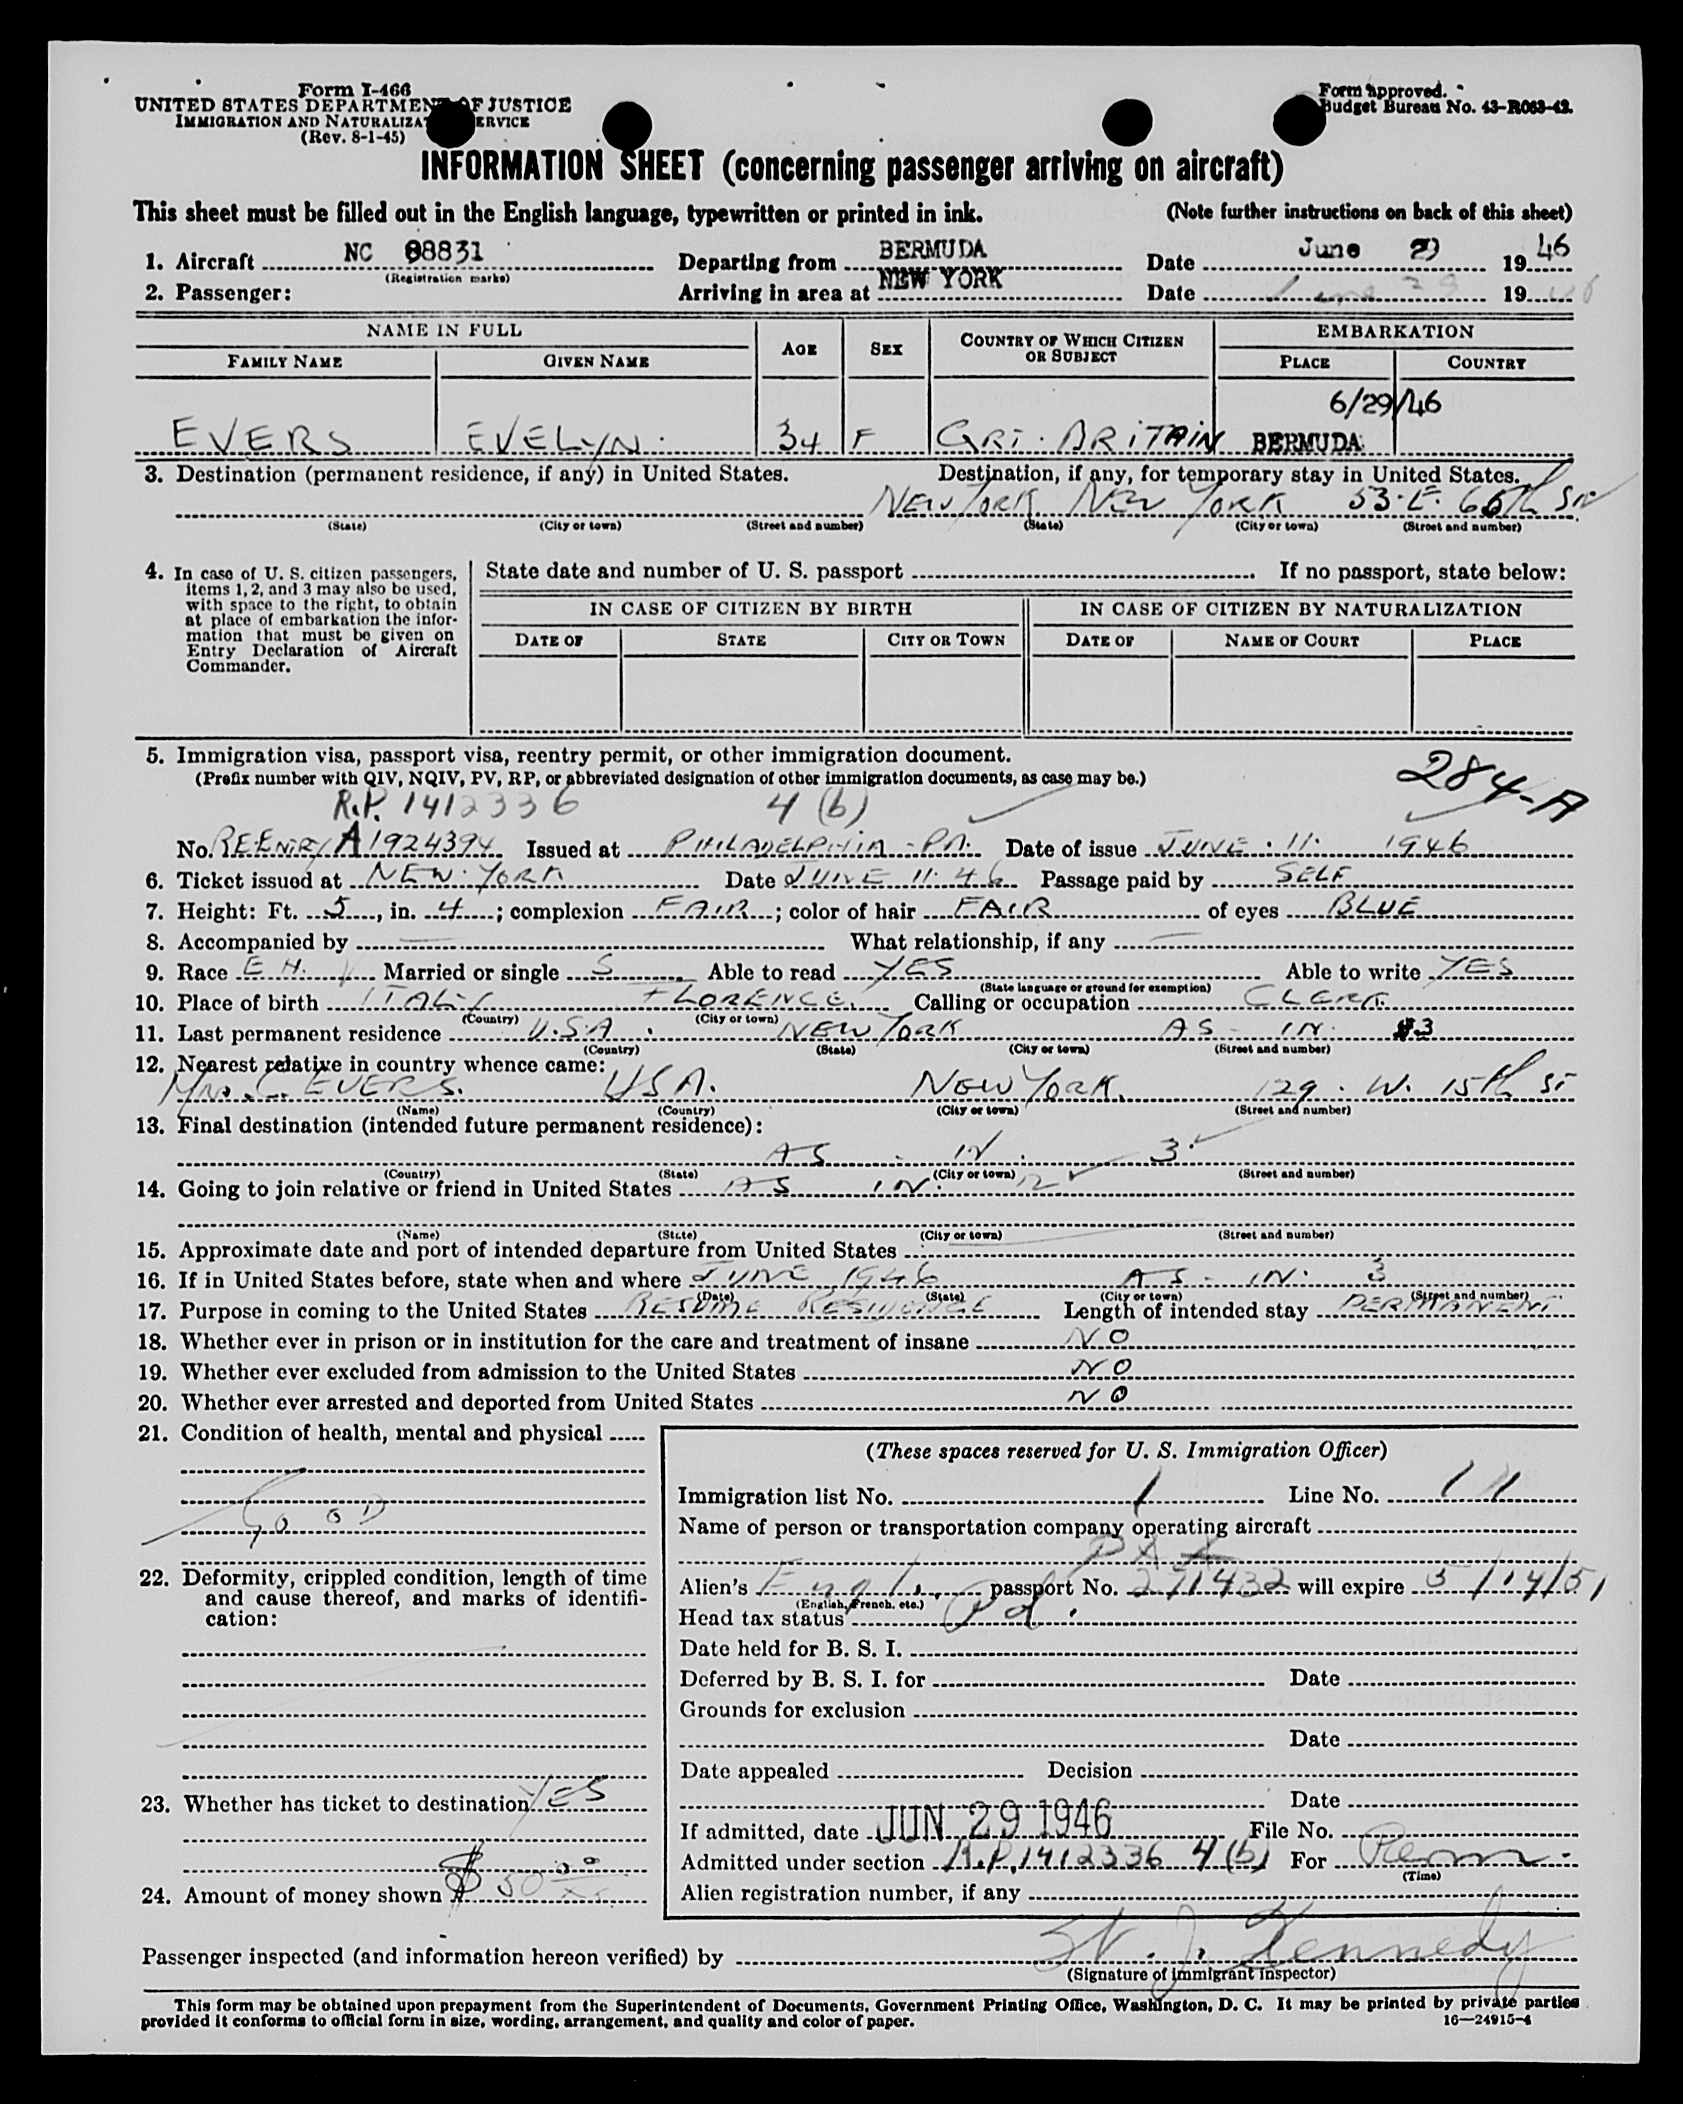 Form I-466
UNITED STATES DEPARTMENT OF JUSTICE
IMMIGRATION AND NATURALIZATION SERVICE
(Rev. 8-1-45)
Form approved.
Budget Bureau No. 43-R063-42.
INFORMATION SHEET (concerning passenger arriving on aircraft)
This sheet must be filled out in the English language, typewritten or printed in ink. (Note further instructions on back of this sheet)
1. Aircraft NC 88831 Departing from BERMUDA Date June 29 1946
(Registration marks)
2. Passenger: Arriving in area at NEW YORK Date June 29 1946
NAME IN FULL AGE SEX COUNTRY OF WHICH CITIZEN OR SUBJECT EMBARKATION
FAMILY NAME GIVEN NAME PLACE COUNTRY
6/29/46
EVERS EVELYN. 34 F GRT. BRITAIN BERMUDA
3. Destination (permanent residence, if any) in United States. Destination, if any, for temporary stay in United States.
NEW YORK NEW YORK 53. E. 66th ST
(State) (City or town) (Street and number) (State) (City or town) (Street and number)
4. In case of U. S. citizen passengers, items 1, 2, and 3 may also be used, with space to the right, to obtain at place of embarkation the information that must be given on Entry Declaration of Aircraft Commander.
State date and number of U. S. passport If no passport, state below:
IN CASE OF CITIZEN BY BIRTH IN CASE OF CITIZEN BY NATURALIZATION
DATE OF STATE CITY OR TOWN DATE OF NAME OF COURT PLACE
5. Immigration visa, passport visa, reentry permit, or other immigration document.
(Prefix number with QIV, NQIV, PV, RP, or abbreviated designation of other immigration documents, as case may be.)
284-A
R.P. 1412336 4 (b)
No. RE-ENTRY A1924394 Issued at PHILADELPHIA - PA. Date of issue JUNE . 11. 1946
6. Ticket issued at NEW. YORK Date JUNE 11. 46 Passage paid by SELF
7. Height: Ft. 5, in. 4; complexion FAIR; color of hair FAIR of eyes BLUE
8. Accompanied by — What relationship, if any —
9. Race E H. Married or single S Able to read YES Able to write YES
(State language or ground for exemption)
10. Place of birth ITALY FLORENCE. Calling or occupation CLERK.
(Country) (City or town)
11. Last permanent residence U.S.A. NEW YORK AS - IN. #3
(Country) (State) (City or town) (Street and number)
12. Nearest relative in country whence came:
C. EVERS. USA. NEW YORK. 129. W. 15th ST
(Name) (Country) (City or town) (Street and number)
13. Final destination (intended future permanent residence):
AS . IN . 3.
(Country) (State) (City or town) (Street and number)
14. Going to join relative or friend in United States AS IN. 12
(Name) (State) (City or town) (Street and number)
15. Approximate date and port of intended departure from United States
16. If in United States before, state when and where JUNE 1946 AS - IN. 3
(Date) (State) (City or town) (Street and number)
17. Purpose in coming to the United States RESUME RESIDENCE Length of intended stay PERMANENT
18. Whether ever in prison or in institution for the care and treatment of insane NO
19. Whether ever excluded from admission to the United States NO
20. Whether ever arrested and deported from United States NO
21. Condition of health, mental and physical
GOOD
22. Deformity, crippled condition, length of time and cause thereof, and marks of identification:
23. Whether has ticket to destination YES
24. Amount of money shown $ 50 00/xx
(These spaces reserved for U. S. Immigration Officer)
Immigration list No. 1 Line No. 11
Name of person or transportation company operating aircraft
PAA
Alien's Engl. passport No. 271432 will expire 5/14/51
(English, French, etc.)
Head tax status Pd.
Date held for B. S. I.
Deferred by B. S. I. for Date
Grounds for exclusion
Date
Date appealed Decision
Date
If admitted, date JUN 29 1946 File No.
Admitted under section R.P. 1412336 4(b) For Perm.
(Time)
Alien registration number, if any
Passenger inspected (and information hereon verified) by J. Kennedy
(Signature of immigrant inspector)
This form may be obtained upon prepayment from the Superintendent of Documents, Government Printing Office, Washington, D. C. It may be printed by private parties
provided it conforms to official form in size, wording, arrangement, and quality and color of paper. 16—24915-4